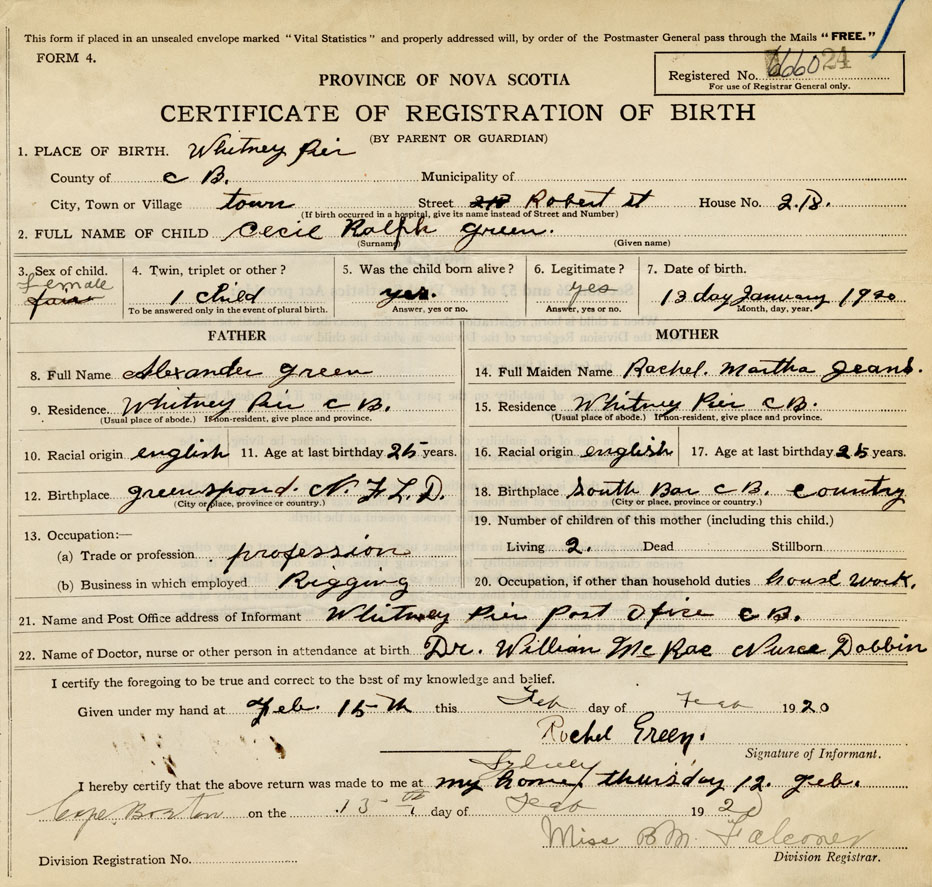 This form if placed in an unsealed envelope marked "Vital Statistics" and properly addressed will, by order of the Postmaster General pass through the Mails "FREE."
FORM 4.
PROVINCE OF NOVA SCOTIA
Registered No. 666024
For use of Registrar General only.
CERTIFICATE OF REGISTRATION OF BIRTH
(BY PARENT OR GUARDIAN)
1. PLACE OF BIRTH. Whitney Pier
County of C B. Municipality of
City, Town or Village town Street Robert st House No. 2.B.
(If birth occurred in a hospital, give its name instead of Street and Number)
2. FULL NAME OF CHILD Cecil Ralph green.
(Surname) (Given name)
3. Sex of child. 4. Twin, triplet or other? 5. Was the child born alive? 6. Legitimate? 7. Date of birth.
Female 1 child yes. yes 13 day January 1920
To be answered only in the event of plural birth. Answer, yes or no. Answer, yes or no. Month, day, year.
FATHER MOTHER
8. Full Name Alexander green 14. Full Maiden Name Rachel. Martha Jeans.
9. Residence Whitney Pier C B. 15. Residence Whitney Pier C B.
(Usual place of abode.) If non-resident, give place and province. (Usual place of abode.) If non-resident, give place and province.
10. Racial origin english 11. Age at last birthday 25 years. 16. Racial origin english 17. Age at last birthday 25 years.
12. Birthplace greenspond. N. F. L. D. 18. Birthplace South Bar C B. Country
(City or place, province or country.) (City or place, province or country.)
13. Occupation:— 19. Number of children of this mother (including this child.)
(a) Trade or profession profession Living 2. Dead Stillborn
(b) Business in which employed Rigging 20. Occupation, if other than household duties house work.
21. Name and Post Office address of Informant Whitney Pier Post Ofice C B.
22. Name of Doctor, nurse or other person in attendance at birth Dr. William McRae Nurse Dobbin
I certify the foregoing to be true and correct to the best of my knowledge and belief.
Given under my hand at Feb. 15th this Feb day of Feb 1920
Rachel Green.
Signature of Informant.
Sydney
I hereby certify that the above return was made to me at my home, thursday 12. Feb.
Cape Breton on the 13th day of Feb 1920
Miss B M. Falconer
Division Registration No. Division Registrar.